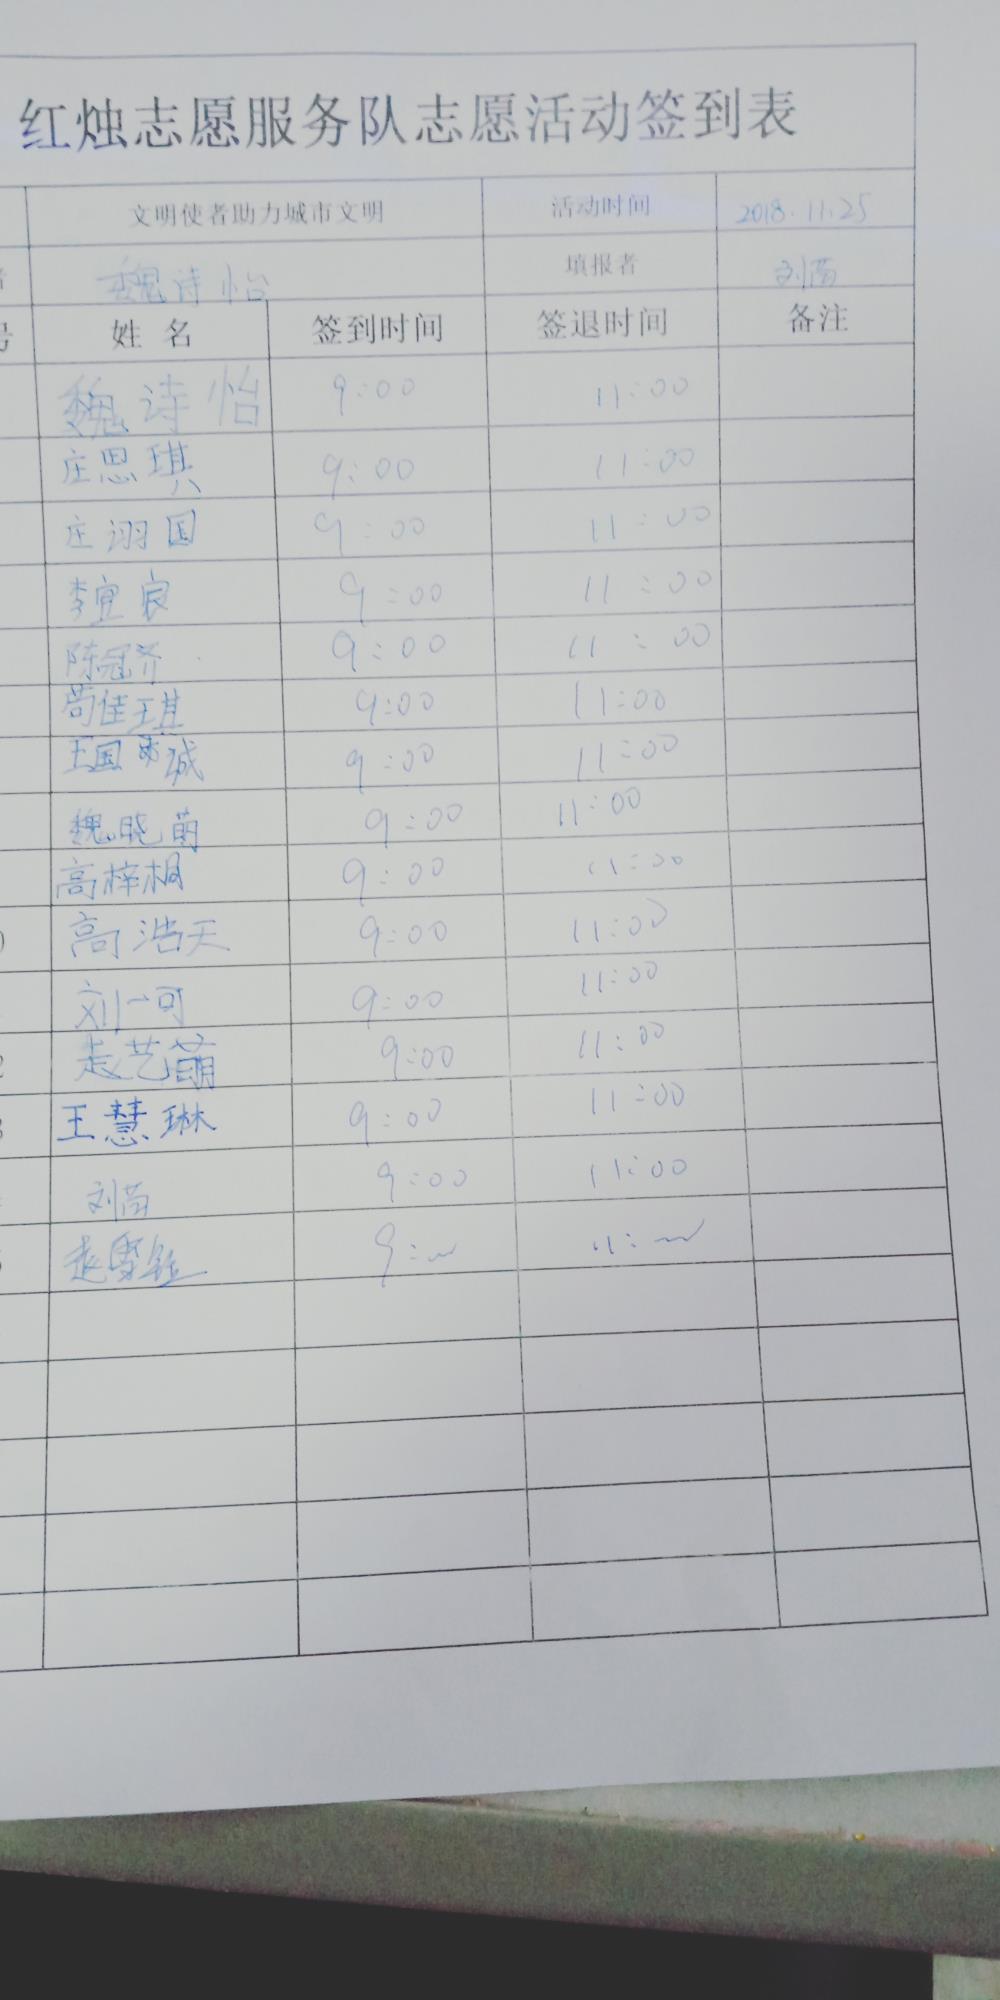 红烛志愿服务队志愿活动签到表
文明使者助力城市文明 活动时间 2018.11.25
者 魏诗怡 填报者 刘茵
号 姓名 签到时间 签退时间 备注
魏诗怡 9:00 11:00
庄思琪 9:00 11:00
庄诩国 9:00 11:00
李宜宸 9:00 11:00
陈冠齐 9:00 11:00
苟佳琪 9:00 11:00
王国诚 9:00 11:00
魏晓萌 9:00 11:00
高梓桐 9:00 11:00
0 高浩天 9:00 11:00
刘一可 9:00 11:00
2 赵艺萌 9:00 11:00
3 王慧琳 9:00 11:00
刘茵 9:00 11:00
9: 11: